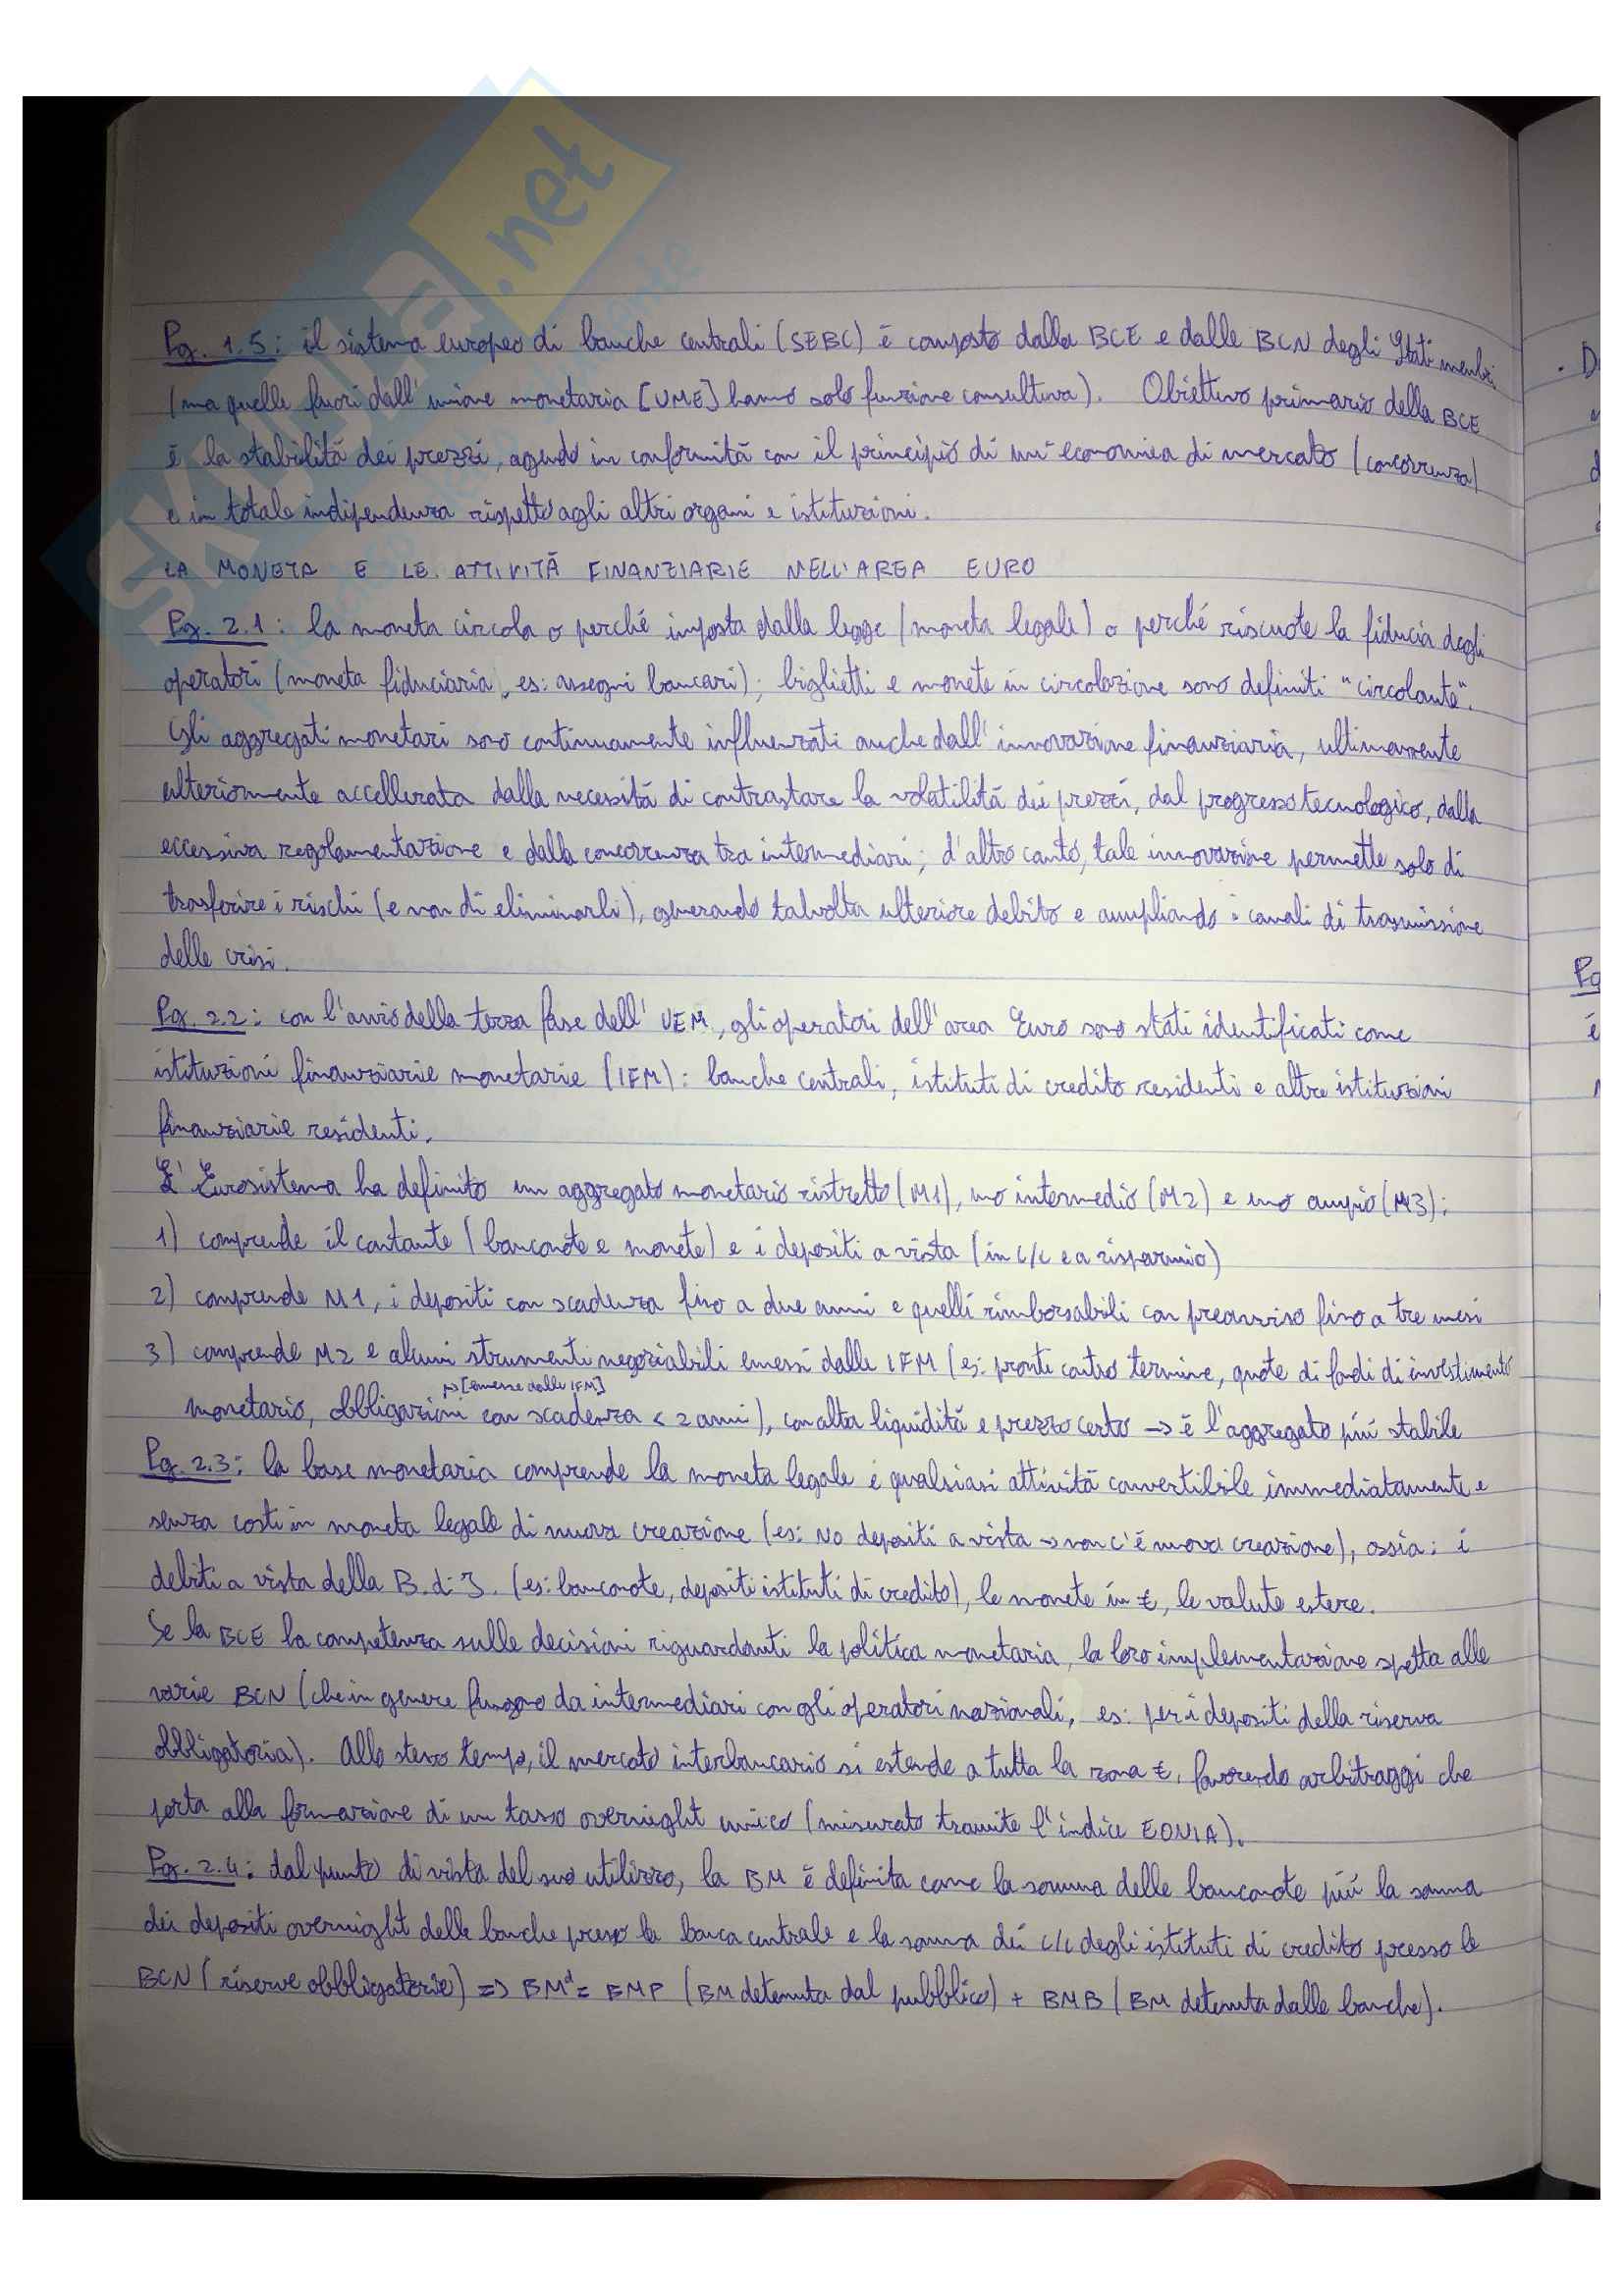 SKUOLA.net
Pg. 1.5: il sistema europeo di banche centrali (SEBC) è composto dalla BCE e dalle BCN degli Stati membri
(ma quelle fuori dall'unione monetaria [UME] hanno solo funzione consultiva). Obiettivo primario della BCE
è la stabilità dei prezzi, agendo in conformità con il principio di un'economia di mercato (concorrenza)
e in totale indipendenza rispetto agli altri organi e istituzioni.
LA MONETA E LE ATTIVITÀ FINANZIARIE NELL'AREA EURO
Pg. 2.1: la moneta circola o perché imposta dalla legge (moneta legale) o perché riscuote la fiducia degli
operatori (moneta fiduciaria, es: assegni bancari); biglietti e monete in circolazione sono definiti "circolante".
Gli aggregati monetari sono continuamente influenzati anche dall'innovazione finanziaria, ultimamente
ulteriormente accellerata dalla necessità di contrastare la volatilità dei prezzi, dal progresso tecnologico, dalla
eccessiva regolamentazione e dalla concorrenza tra intermediari; d'altro canto, tale innovazione permette solo di
trasferire i rischi (e non di eliminarli), generando talvolta ulteriore debito e ampliando i canali di trasmissione
delle crisi.
Pg. 2.2: con l'avvio della terza fase dell'UEM, gli operatori dell'area Euro sono stati identificati come
istituzioni finanziarie monetarie (IFM): banche centrali, istituti di credito residenti e altre istituzioni
finanziarie residenti.
L'Eurosistema ha definito un aggregato monetario ristretto (M1), uno intermedio (M2) e uno ampio (M3):
1) comprende il contante (banconote e monete) e i depositi a vista (in c/c e a risparmio)
2) comprende M1, i depositi con scadenza fino a due anni e quelli rimborsabili con preavviso fino a tre mesi
3) comprende M2 e alcuni strumenti negoziabili emessi dalle IFM (es: pronti contro termine, quote di fondi di investimento
↦ [emesse dalle IFM]
monetario, obbligazioni con scadenza < 2 anni), con alta liquidità e prezzo certo → è l'aggregato più stabile
Pg. 2.3: la base monetaria comprende la moneta legale e qualsiasi attività convertibile immediatamente e
senza costi in moneta legale di nuova creazione (es: NO depositi a vista → non c'è nuova creazione), ossia: i
debiti a vista della B. d. I. (es: banconote, depositi istituti di credito), le monete in €, le valute estere.
Se la BCE ha competenza sulle decisioni riguardanti la politica monetaria, la loro implementazione spetta alle
varie BCN (che in genere fungono da intermediari con gli operatori nazionali, es: per i depositi della riserva
obbligatoria). Allo stesso tempo, il mercato interbancario si estende a tutta la zona €, favorendo arbitraggi che
porta alla formazione di un tasso overnight unico (misurato tramite l'indice EONIA).
Pg. 2.4: dal punto di vista del suo utilizzo, la BM è definita come la somma delle banconote più la somma
dei depositi overnight delle banche presso la banca centrale e la somma dei c/c degli istituti di credito presso le
BCN (riserve obbligatorie) => BMᵈ = BMP (BM detenuta dal pubblico) + BMB (BM detenuta dalle banche).